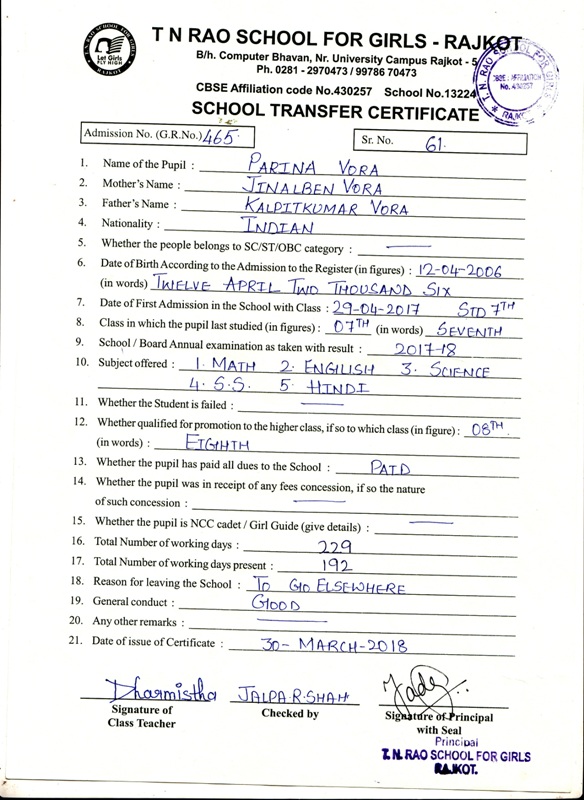 T. N. RAO SCHOOL FOR GIRLS
Let Girls
FLY HIGH
RAJKOT
T N RAO SCHOOL FOR GIRLS - RAJKOT
B/h. Computer Bhavan, Nr. University Campus Rajkot - 5
Ph. 0281 - 2970473 / 99786 70473
CBSE Affiliation code No.430257 School No.13224
T. N. RAO SCHOOL FOR
CBSE : AFFILIATION
No. 430257
SCHOOL TRANSFER CERTIFICATE
Admission No. (G.R.No.) 465. Sr. No. 61.
1. Name of the Pupil : PARINA VORA
2. Mother's Name : JINALBEN VORA
3. Father's Name : KALPITKUMAR VORA
4. Nationality : INDIAN
5. Whether the people belongs to SC/ST/OBC category : —
6. Date of Birth According to the Admission to the Register (in figures) : 12-04-2006
(in words) TWELVE APRIL TWO THOUSAND SIX
7. Date of First Admission in the School with Class : 29-04-2017 STD 7TH
8. Class in which the pupil last studied (in figures) : 07TH (in words) SEVENTH
9. School / Board Annual examination as taken with result : 2017-18
10. Subject offered : 1. MATH 2. ENGILISH 3. SCIENCE
4. S.S. 5. HINDI
11. Whether the Student is failed : —
12. Whether qualified for promotion to the higher class, if so to which class (in figure) : 08TH.
(in words) : EIGHTH
13. Whether the pupil has paid all dues to the School : PAID
14. Whether the pupil was in receipt of any fees concession, if so the nature
of such concession : —
15. Whether the pupil is NCC cadet / Girl Guide (give details) : —
16. Total Number of working days : 229
17. Total Number of working days present : 192
18. Reason for leaving the School : TO GO ELSEWHERE
19. General conduct : GOOD
20. Any other remarks : —
21. Date of issue of Certificate : 30-MARCH-2018
Dharmistha JALPA.R.SHAH
Signature of Class Teacher
Checked by
Signature of Principal
with Seal
Principal
T.N. RAO SCHOOL FOR GIRLS
RAJKOT.